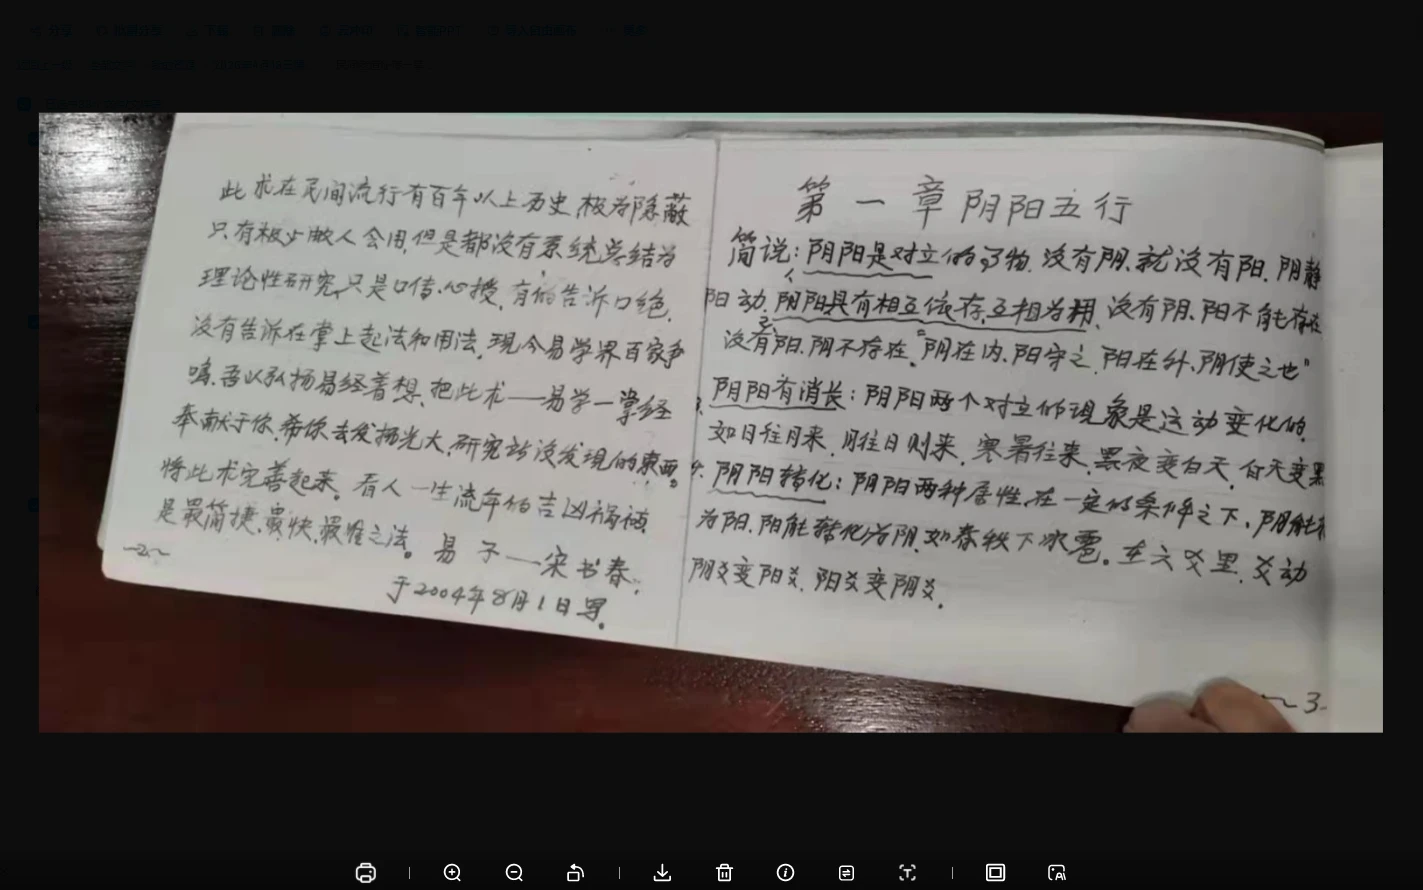 此术在民间流行有百年以上历史,极为隐蔽
只有极少数人会用,但是都没有系统总结为
理论性研究,只是口传、心授,有的告诉口绝,
没有告诉在掌上起法和用法,现今易学界百家争
鸣,吾以弘扬易经着想,把此术——易学一掌经
奉献于你,希你去发扬光大,研究新没发现的东西。
将此术完善起来。看人一生流年的吉凶祸福,
是最简捷、最快、最准之法。易子——宋书春.
~2~
于2004年8月1日写。
第一章 阴阳五行
简说:阴阳是对立的事物.没有阴、就没有阳.阴静
阳动.阴阳具有相互依存,互相为用,没有阴、阳不能存在
没有阳.阴不存在。“阴在内、阳守之,阳在外、阴使之也”
3.阴阳有消长:阴阳两个对立的现象是运动变化的.
如日往月来,月往日则来,寒暑往来,黑夜变白天,白天变黑
4.阴阳转化:阴阳两种属性,在一定的条件之下、阴能转
为阳.阳能转化为阴.如春秋下冰雹。在六爻里,爻动
阴爻变阳爻,阳爻变阴爻.
~3~